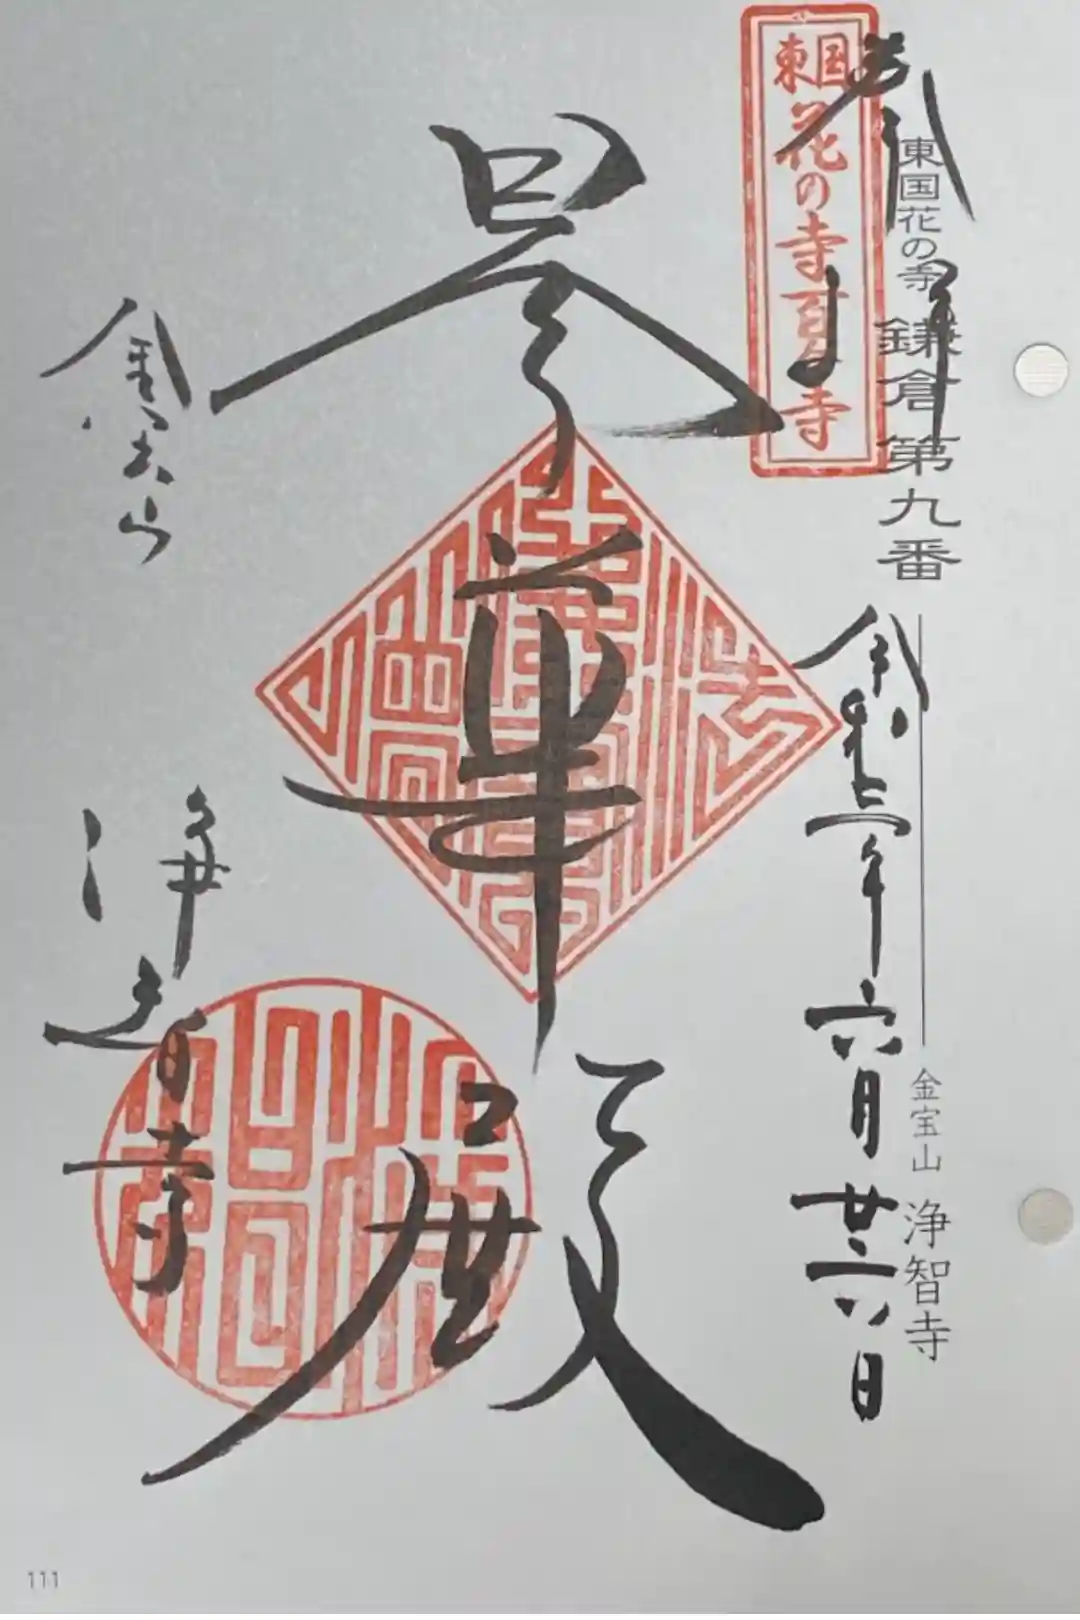 東国花の寺 鎌倉第九番
金宝山 浄智寺
東国
花の寺百ヶ寺
奉拝
令和 年六月廿六日
曇華殿
金宝山
浄智寺
111